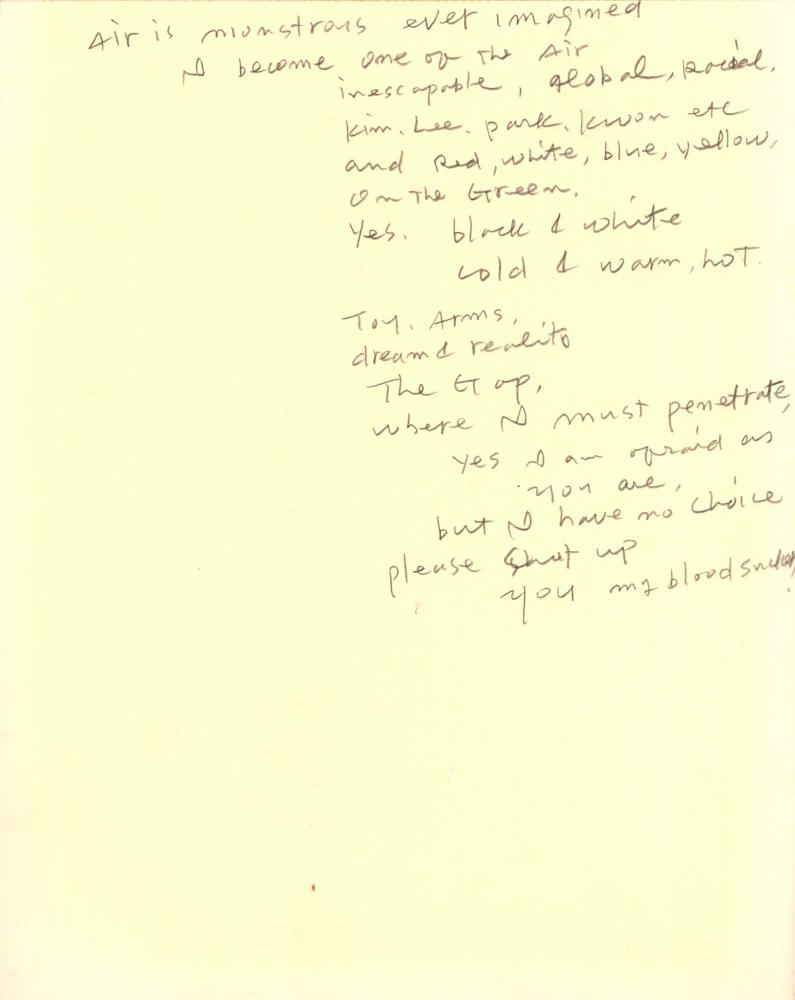 Air is monstrous ever imagined
I become one of The Air
inescapable, global, racial.
Kim. Lee. park. kwon etc
and Red, white, blue, yellow,
On The Green.
Yes. black & white
cold & warm, hot.
Toy. Arms,
dream & reality
The Gap,
where I must penetrate,
yes I am afraid as
you are,
but I have no choice
please shut up
you my bloodsucker,